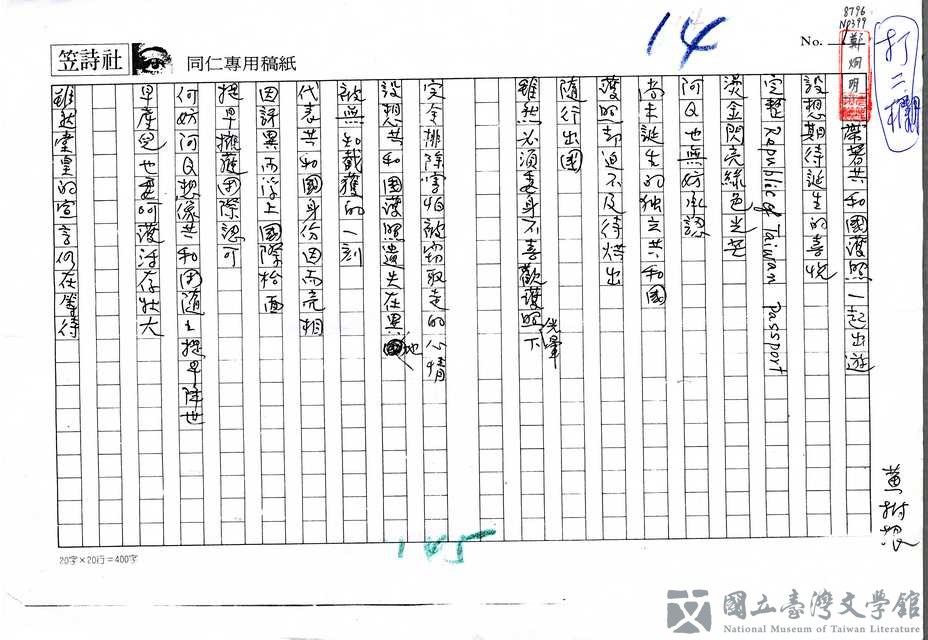 8796
NP399
14
打二欄
No.
鄭烱明
笠詩社
同仁專用稿紙
帶著共和國護照一起出遊
設想期待誕生的喜悅
完整 Republic of Taiwan Passport
燙金閃亮綠色光芒
阿Q也無妨承認
尚未誕生的獨立共和國
護照却迫不及待搭出
隨行出國
雖然必須委身不喜歡護照光暈下
完全排除害怕被竊取走的心情
設想共和國護照遺失在異地
被無知截獲的一刻
代表共和國身份因而亮相
因詫異而浮上國際枱面
提早擁護國際認可
何妨阿Q想像共和國隨之提早降世
早產兒也要呵護活存壯大
雖然堂皇的宣言仍在等待
黃樹根
145
20字×20行=400字
國立臺灣文學館
National Museum of Taiwan Literature